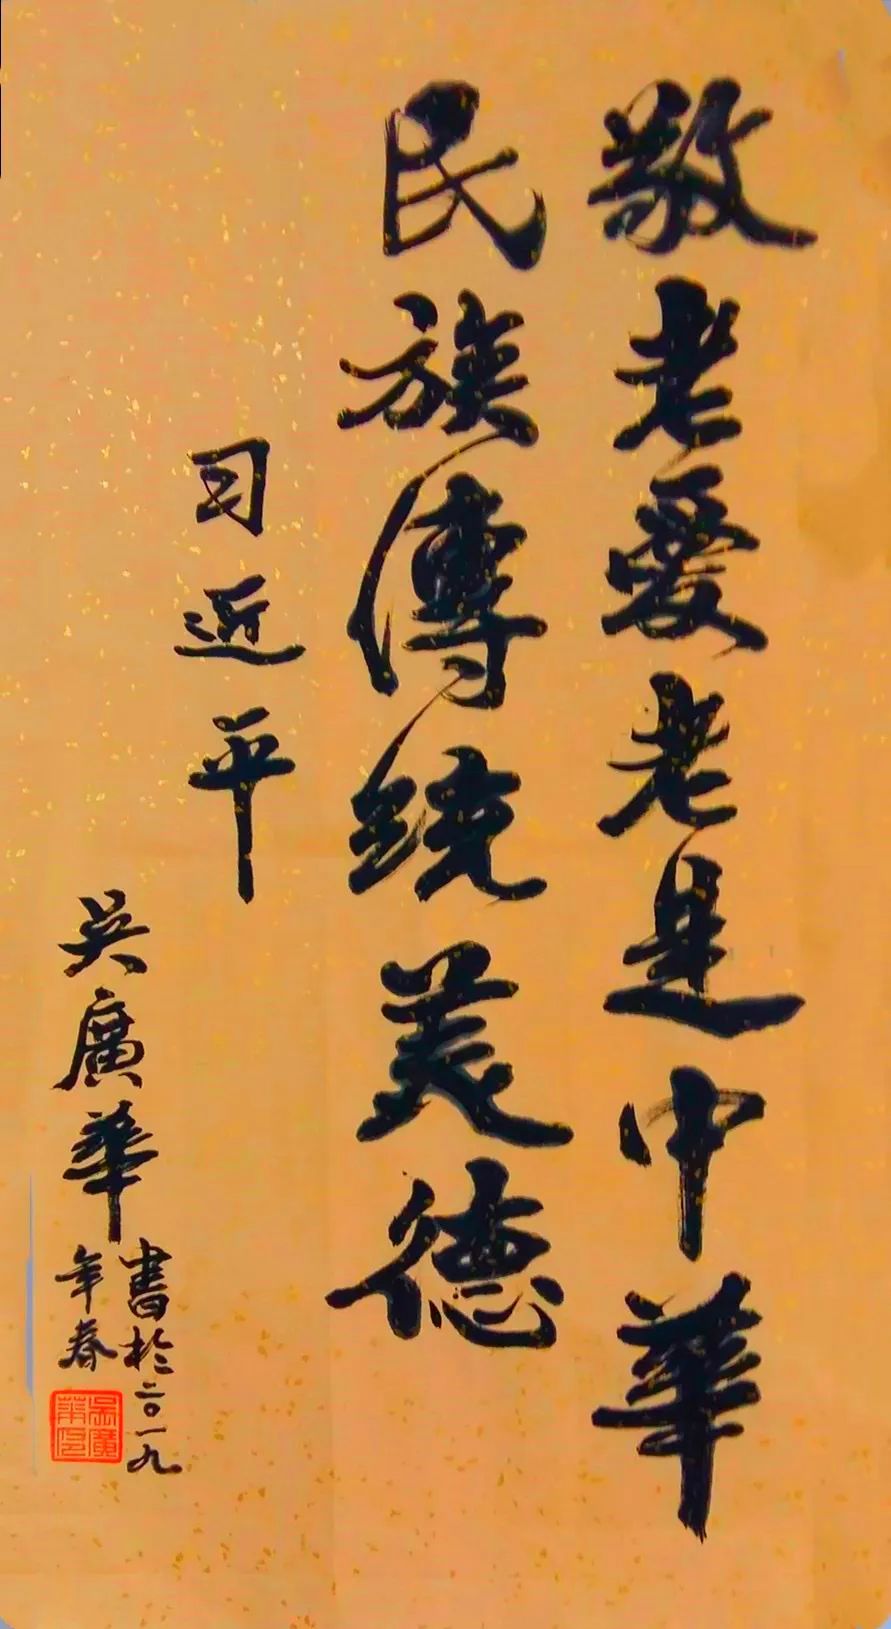 敬老爱老是中華
民族傳統美德
习近平
吴廣華
書於二〇一九
年春
吴廣華印